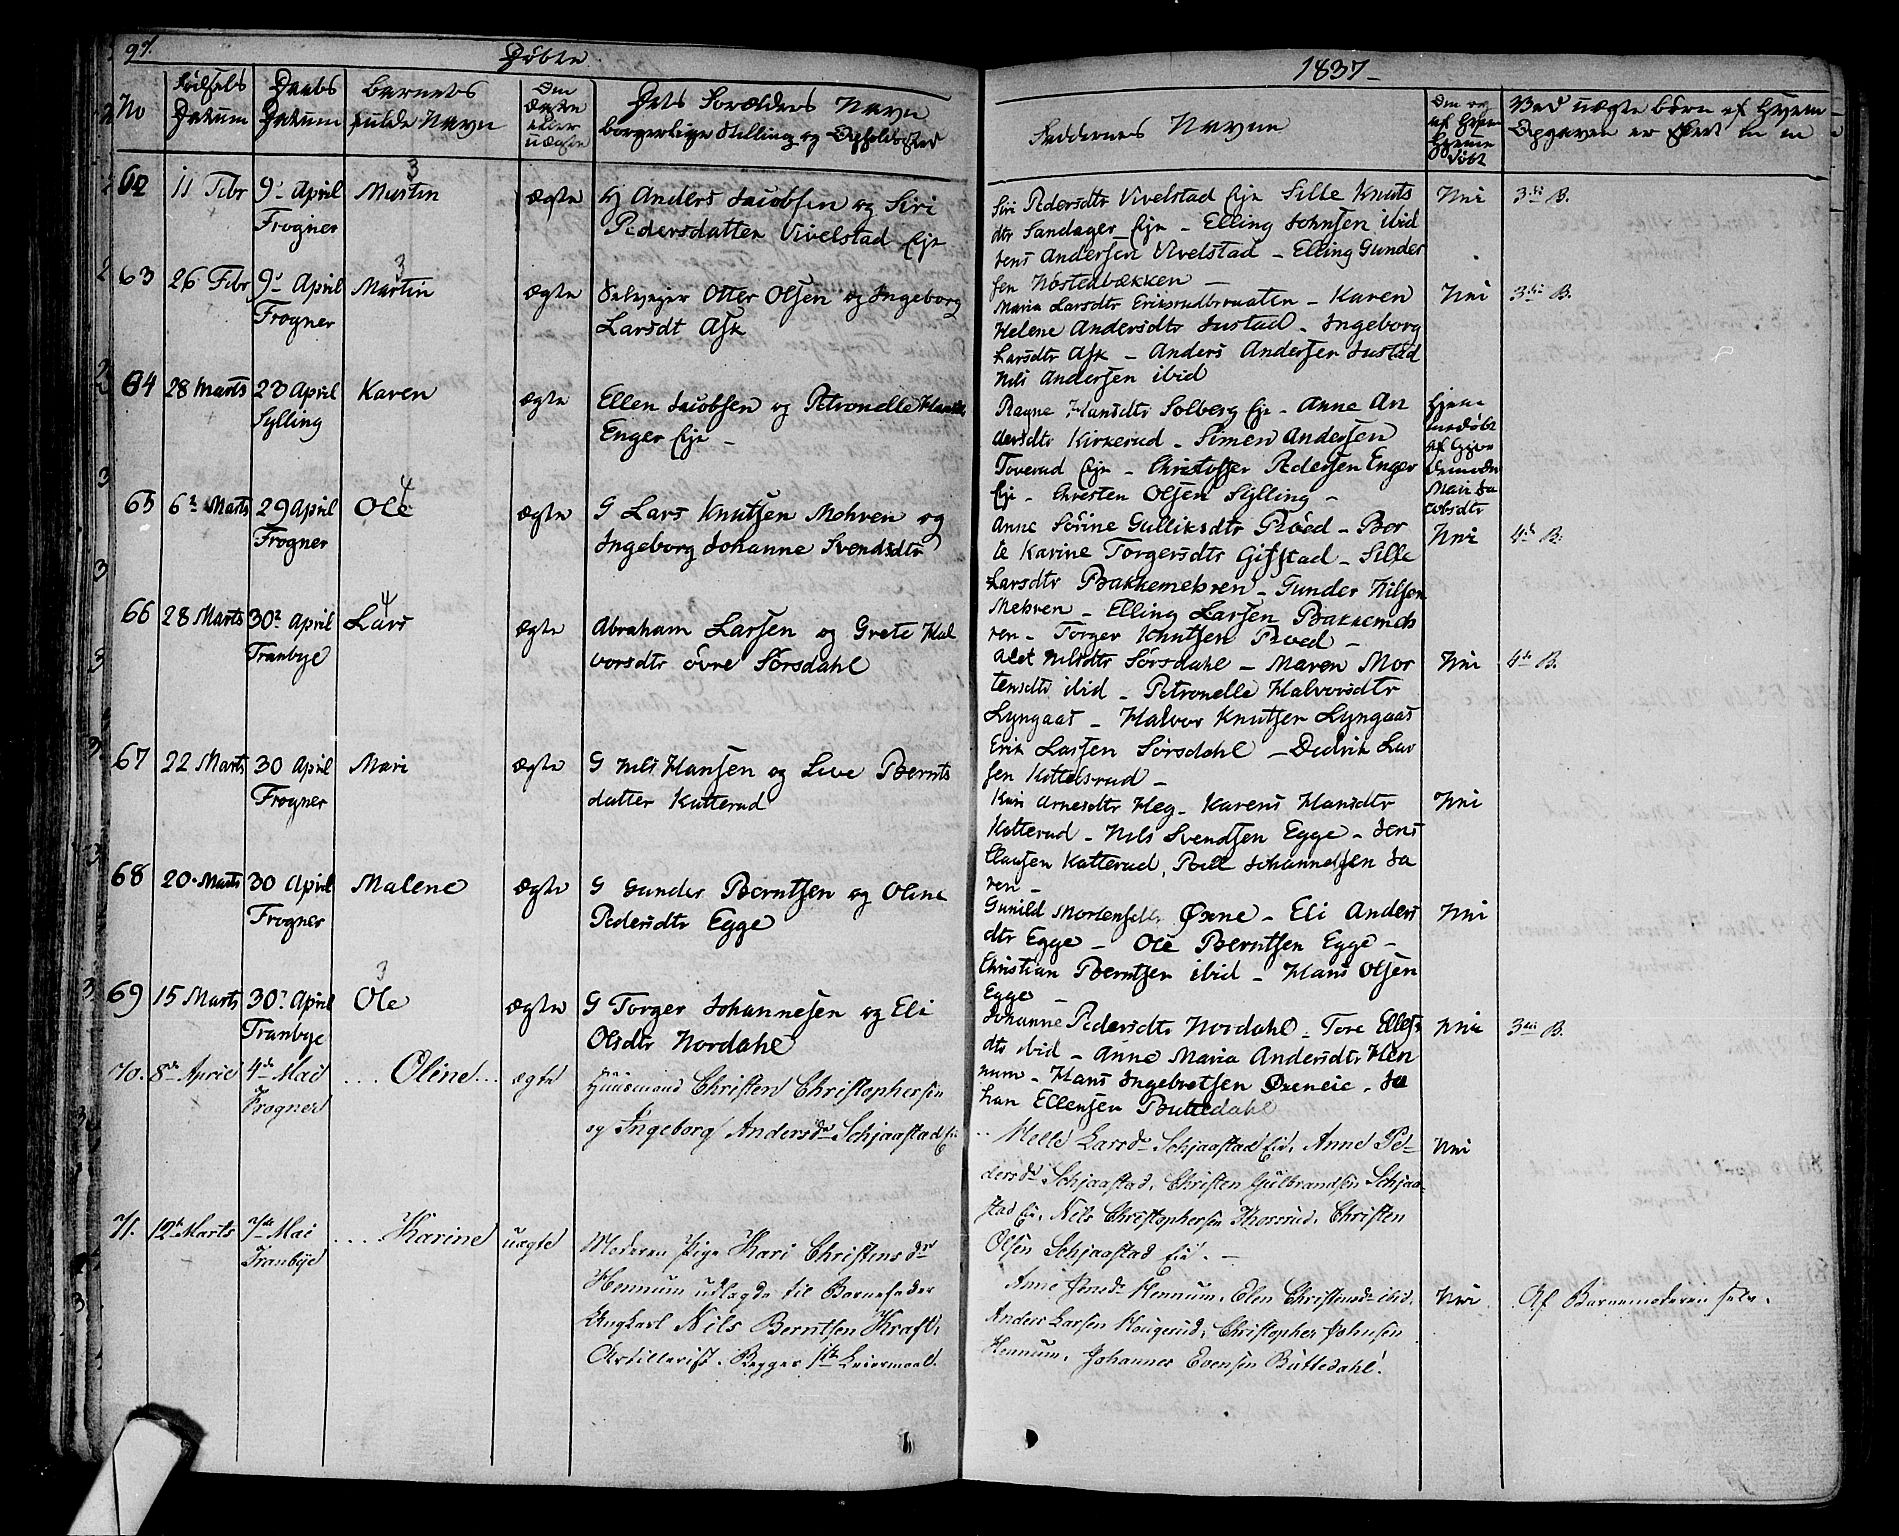 97.
Døbte
1837
No
Fødsels Datum
Daabs Datum
Barnets fulde Navn
Om Ægte eller uægte
Dets Forældres Navn
borgerlige Stilling og Opholdssted
Faddernes Navne
Om og af Hvem Hjemme Døbt
Ved uægte børn af Hvem
Opgaven er skeet
62
11 Febr
9' April
Frogner
3
Martin
Ægte
Hj Anders Jacobsen og Siri
Pedersdatter Vivelstad Eje
Siri Pedersdtr Vivelstad Eje Sille Knuts
dtr Sandager Eje - Elling Johnsen ibid
Jens Andersen Vivelstad - Elling Gunder
sen Høstedbækken -
Nei
3die B.
63
26 Febr
9' April
Frogner
3
Martin
Ægte
Selvejer Otter Olsen og Ingeborg
Larsdt Ask
Maria Larsdtr Eriksrudbraaten - Karen
Helene Andersdtr Justad - Ingeborg
Larsdtr Ask - Anders Andersen Justad
Nils Andersen ibid
Nei
3die B.
64
28 Marts
23 April
Sylling
Karen
Ægte
Ellen Jacobsen og Petronelle Hansdtr
Enger Eje -
Ragne Hansdtr Solberg Eje - Anne An
dersdtr Kirkerud - Simen Andersen
Toverud Eje - Christoffer Pedersen Enger
Eje - Chresten Olsen Sylling -
Hjemmedøbt
af
Mari Ja
cobsdtr
65
6te Marts
29 April
Frogner
4
Ole
Ægte
G Lars Knutsen Mehren og
Ingeborg Johanne Svendsdtr
Anne Sørine Gulliksdtr Røed - Bor
te Karine Torgersdtr Gifstad - Sille
Larsdtr Bakkemehren - Gunder Nilsen
Mehren - Elling Larsen Bakkemeh
ren - Torger Knutsen Røed -
Nei
4de B.
66
28 Marts
30te April
Tranbye
4
Lars
Ægte
Abraham Larsen og Grete Hal
vorsdtr øvre Sørsdahl
Alet Nilsdtr Sørsdahl - Maren Mor
tensdtr ibid - Petronelle Halvorsdtr
Lyngaas - Halvor Knutsen Lyngaas
Erik Larsen Sørsdahl - Didrik Lar
sen Kittelsrud -
Nei
4de B.
67
22 Marts
30 April
Frogner
Mari
Ægte
G Nils Hansen og Live Bernts
datter Katterud
Kari Arnesdtr Heg - Karens Hansdtr
Katterud - Nils Svendsen Egge - Jens
Clausen Katterud, Peder Johannessen Ja
ren -
Nei
68
20 Marts
30 April
Frogner
Malene
Ægte
G Gunder Berntsen og Oline
Pedersdtr Egge
Gunild Mortensdtr Øxne - Eli Anders
dtr Egge - Ole Berntsen Egge -
Christian Berntsen ibid - Hans Olsen
Egge -
Nei
69
15 Marts
30te April
Tranbye
3
Ole
Ægte
G Torger Johannesen og Eli
Olsdtr Nordahl
Johanne Pedersdtr Nordahl - Tore Ellefs
dtr ibid - Anne Maria Andersdtr Hen
num - Hans Ingebretsen Øxneie - Jo
han Ellensen Buttedahl
Nei
3die B.
70.
8de April
4de Mai
Frogner
... Oline ...
ægte
Huusmand Christen Christophersen
og Ingeborg Andersdr Schjaastad Eie
.. Helle Larsdr Schjaastad Eie, Anne Pe-
dersdr Schjaastad, Christen Gulbrandsen Schjaa-
stad Eie, Nils Christophersen Thorsrud, Christen
Olsen Schjaastad Eie. -
Nei
71.
12te Marts
7de Mai
Tranbye
... Karine
uægte
Moderen Pige Kari Christensdr
Hennum udlagde til Barnefader
Ungkarl Nils Berntsen Kraft,
Artillerist. Begges 1te Leiermaal.
Anne Jonsdr Hennum, Elen Christensdr ibid,
Anders Larsen Haugerud, Christopher Johnsen
Hennum, Johannes Evensen Buttedahl.
Nei.
Af Barnemoderen selv.